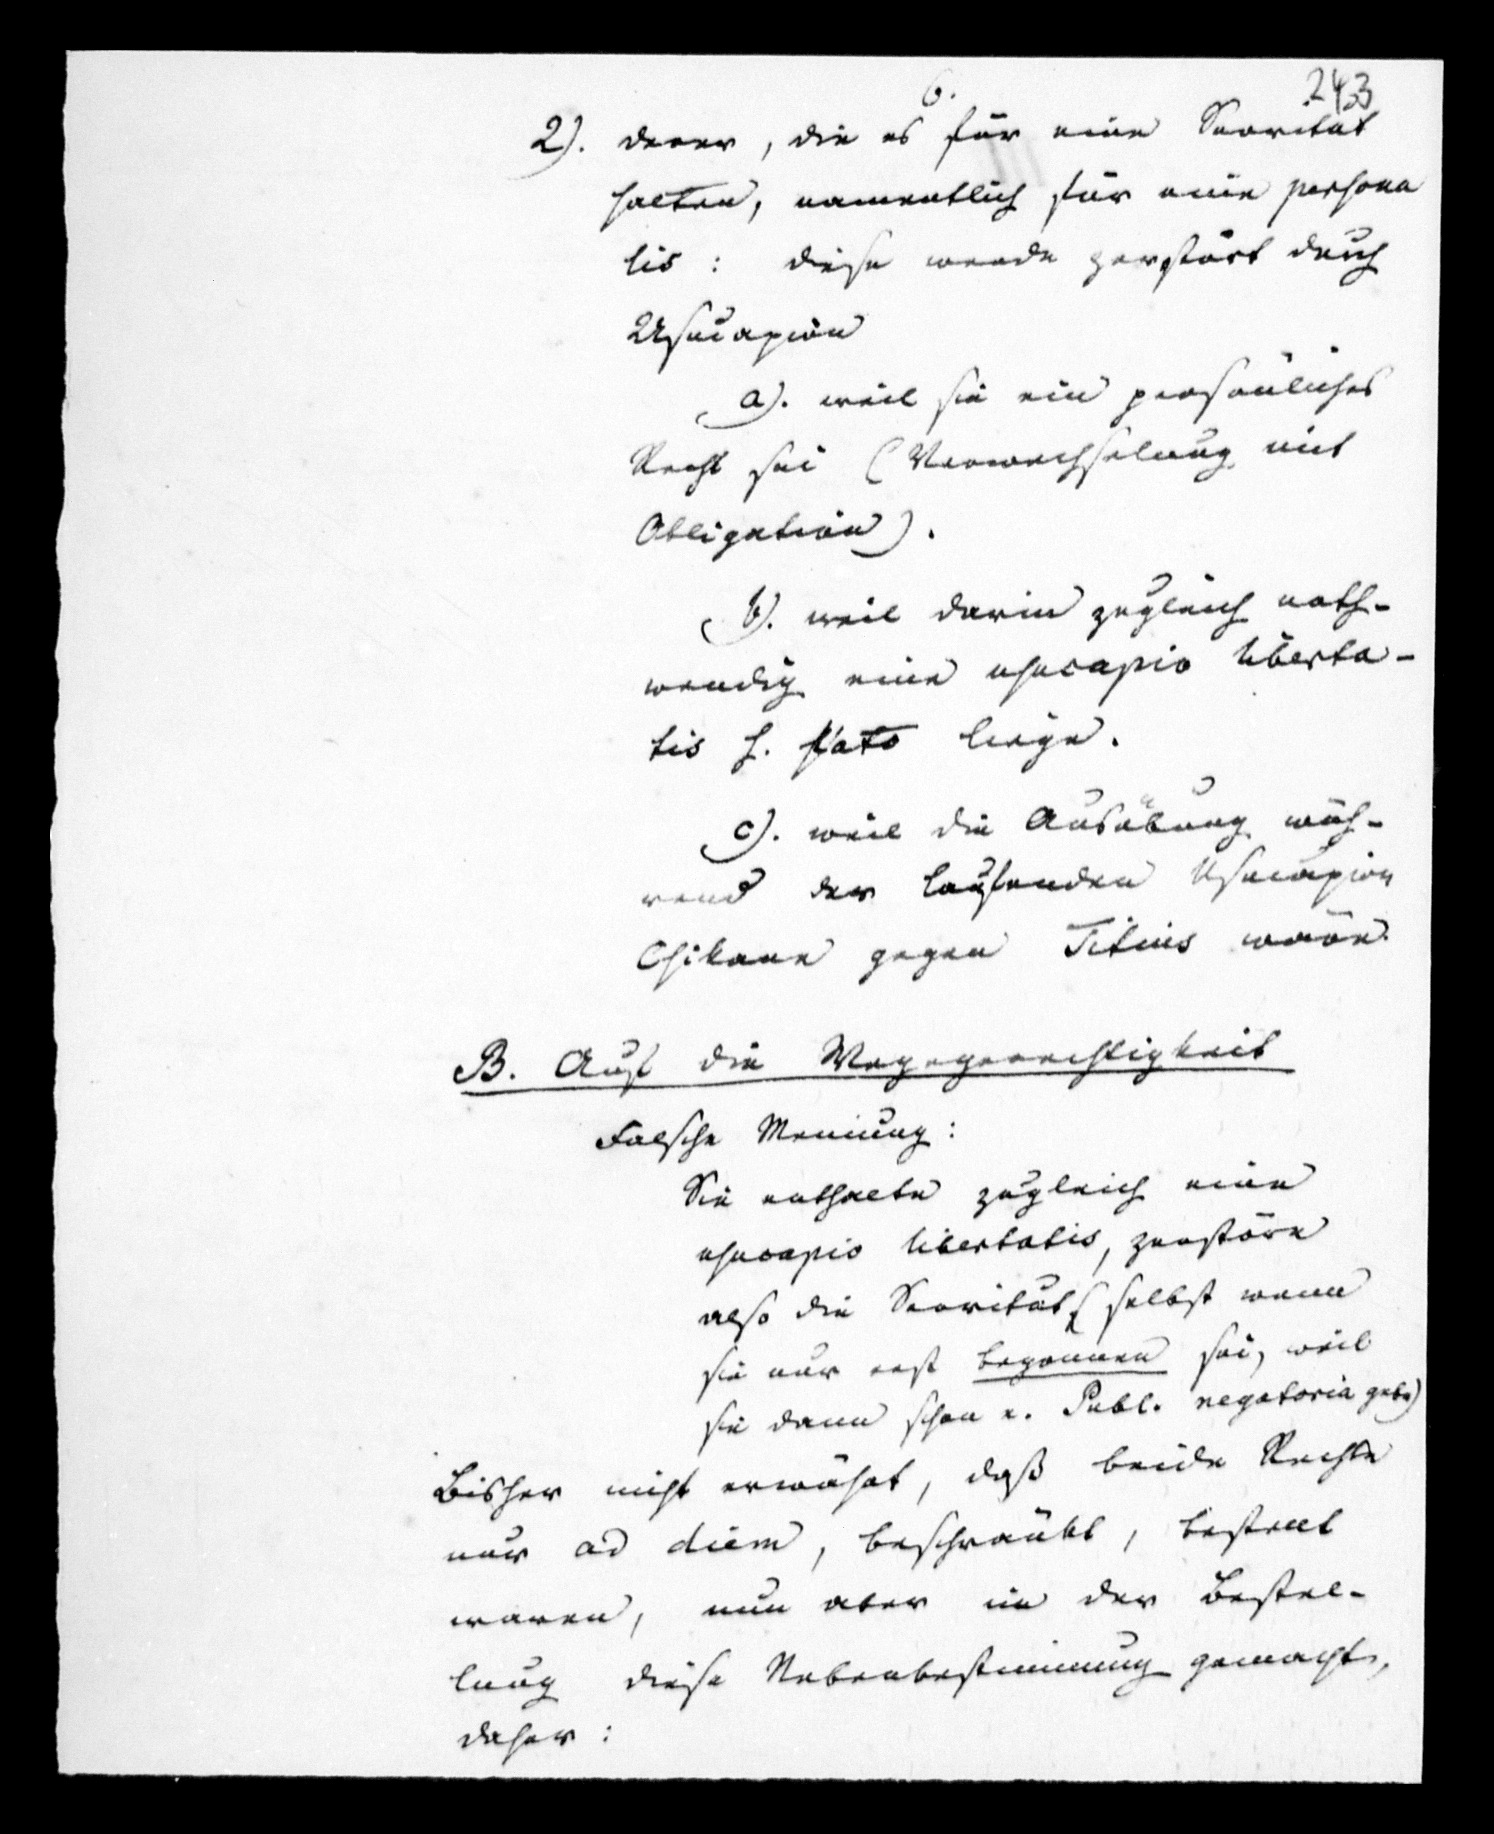 243
6.
2). derer, die es für eine Servitut
halten, namentlich für eine persona
lis: diese werde zerstört durch
Usucapion
a). weil sie ein persönliches
Recht sei (Verwechselung mit
Obligation).
b). weil darin zugleich noth-
wendig eine usucapio liberta-
tis liege.
c). weil die Ausübung wäh-
rend der laufenden Usucapion
Chikane gegen Titius wäre.
B. Auf die Wegegerechtigkeit
Falsche Meinung:
Sie enthalte zugleich eine
usucapio libertatis, zerstöre
also die Servitut (selbst wenn
sie nur erst begonnen sei, weil
sie dann schon e. Publ. negatoria gebe)
Bisher nicht erwähnt, daß beide Rechte
nur ad diem, beschränkt, bestellt
waren, nun aber in der Bestel-
lung diese Nebenbestimmung gemacht,
daher: